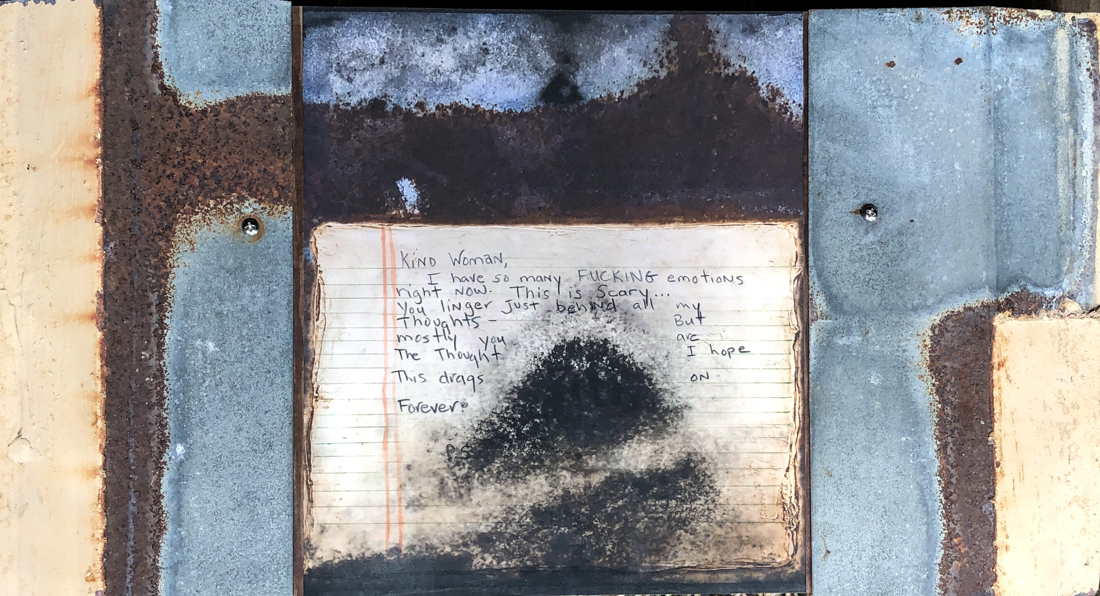 Kind Woman,
I have so many FUCKING emotions
right now. This is Scary...
You linger just behind all my
Thoughts - But
mostly you are
The Thought I hope
This drags on
Forever.